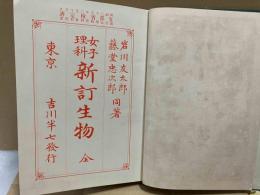 岩川友太郎
藤堂忠次郎
同著
女子
理科
新訂生物
全
東京
吉川半七發行